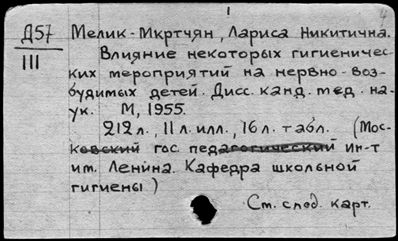 Д57 Мелик-Мкртчян, Лариса Никитична.
III Влияние некоторых гигиеничес-
ких мероприятий на нервно-воз-
будимых детей. Дисс. канд. мед. на-
ук. М, 1955.
212 л., 11 л. илл., 16 л. табл. (Мос-
ковский гос. педагогический ин-т
им. Ленина. Кафедра школьной
гигиены)
См. след. карт.